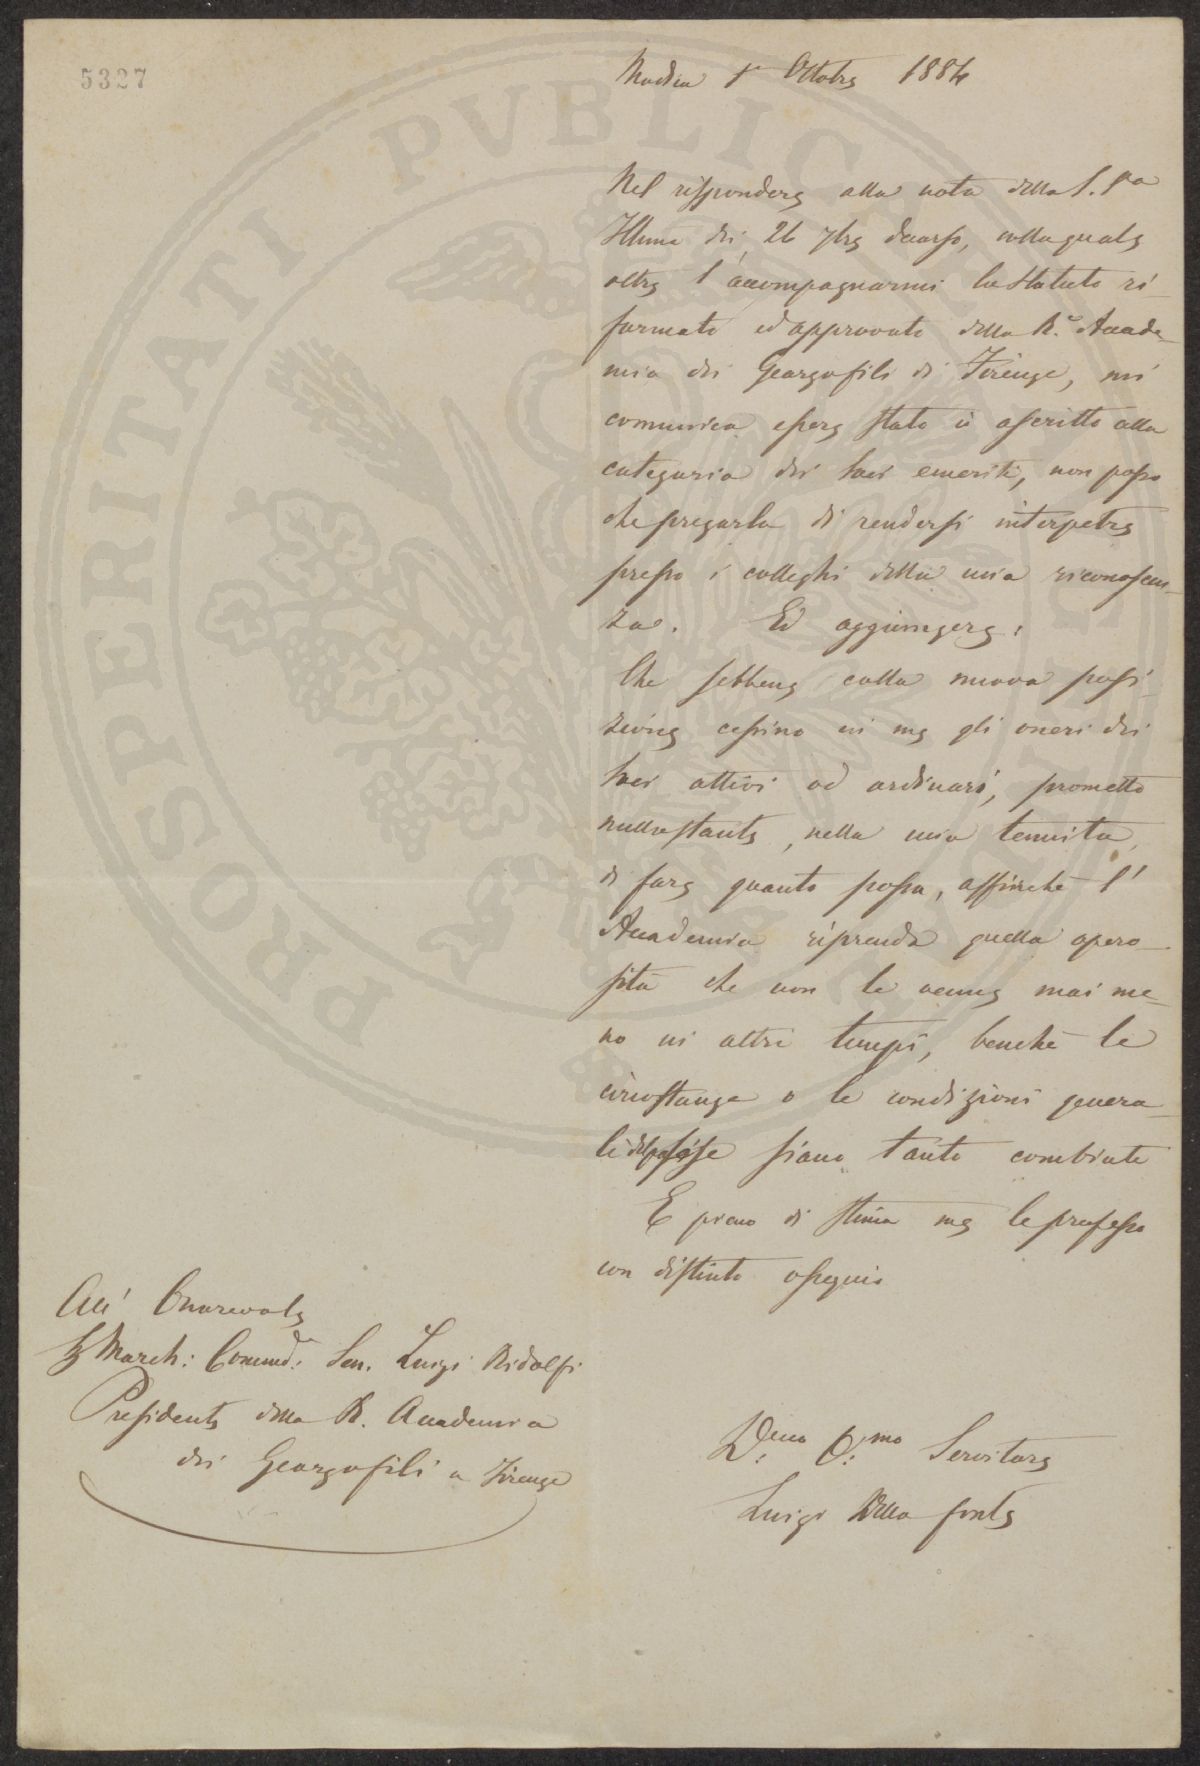 5327
1° Ottobre 1884
Nel rispondere alla nota della S. Va
Illma dei 26 7bre decorso, colla quale
oltre l'accompagnarmi lo Statuto ri-
formato ed approvato della R.e Accade-
mia dei Georgofili di Firenze, mi
comunica essere stato io ascritto alla
categoria dei Soci emeriti, non posso
che pregarla di rendersi interpetre
presso i colleghi della mia riconoscen-
za. Ed aggiungere:
Che sebbene colla nuova posi-
zione cessino in me gli oneri dei
Soci attivi od ordinari, prometto
nullostante, nella mia tenuità,
di fare quanto possa, affinchè l'
Accademia riprenda quella opero-
sità che non le venne mai me-
no in altri tempi, benchè le
circostanze o le condizioni genera-
li siano tanto cambiate
E pieno di stima me le professo
con distinto ossequio
All' Onorevole
March: Commd: Sen. Luigi Ridolfi
Presidente della R. Accademia
dei Georgofili a Firenze
D:mo O:mo Servitore
Luigi Della fonte
PROSPERITATI PVBLICAE